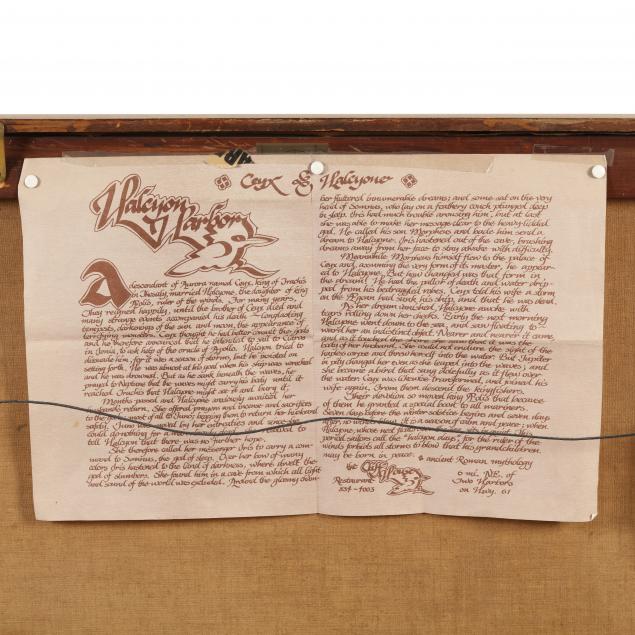 Ceyx & Halcyone
Halcyon
Harbor
A descendant of Aurora named Ceyx, king of Trachis
in Thessaly, married Halcyone, the daughter of king
Æolis, ruler of the winds. For many years,
they reigned happily, until the brother of Ceyx died and
many strange events accompanied his death — longlasting
tempests, darkenings of the sun and moon, the appearance of
terrifying monsters. Ceyx thought he had better consult the gods
and he therefore announced that he intended to sail to Claros
in Ionia, to ask help of the oracle of Apollo. Halcyon tried to
dissuade him, for it was a season of storms, but he insisted on
setting forth. He was almost at his goal when his ship was wrecked
and he was drowned. But as he sank beneath the waves, he
prayed to Neptune that the waves might carry his body until it
reached Trachis that Halcyone might see it and bury it.
Months passed and Halcyone anxiously awaited her
husband's return. She offered prayers and incense and sacrifices
to the gods, most of all to Juno, begging them to return her husband
safely. Juno was moved by her entreaties and since she
could do nothing for a
tell Halcyon that there was no further hope.
She therefore called her messenger Iris to carry a com-
mand to Somnus, the god of sleep. Over her bow of many
colors Iris hastened to the land of darkness, where dwelt the
god of slumbers. She found him in a cave from which all light
and sound of the world was excluded. Around the gloomy cham-
ber fluttered innumerable dreams; and some sat on the very
head of Somnus, who lay on a feathery couch plunged deep
in sleep. Iris had much trouble arousing him, but at last
she was able to make her message clear to the heavy-lidded
god. He called his son Morpheus and bade him send a
dream to Halcyone. Iris hastened out of the cave, brushing
dreams away from her face to stay awake with difficulty.
Meanwhile Morpheus himself flew to the palace of
Ceyx and assuming the very form of its master, he appear-
ed to Halcyone. But how changed was that form in
the dream! He had the pallor of death and water drip-
ped from his bedraggled robes. Ceyx told his wife a storm
on the Ægean had sunk his ship, and that he was dead.
As her dream vanished, Halcyone awoke with
tears rolling down her cheeks. Early the next morning
Halcyone went down to the sea, and saw floating to-
ward her an indistinct object. Nearer and nearer it came,
and as it touched the shore she saw that it was the
body of her husband. She could not endure the sight of the
hapless corpse and threw herself into the water. But Jupiter
in pity changed her even as she leaped into the waves, and
she became a bird that sang dolefully as it flew over
the water. Ceyx was likewise transformed, and joined his
wife again. From them descend the kingfishers.
Their devotion so moved king Æolis that because
of them he granted a special boon to all mariners.
Seven days before the winter solstice begins and seven days
after, no winds blow. It is a season of calm and peace; when
Halcyone, whose nest
period sailors call the "halcyon days," for the ruler of the
winds forbids all storms to blow that his grandchildren
may be born in peace.
ancient Roman mythology
the Cliff House
Restaurant
834-4003
6 mi. NE. of
Two Harbors
on Hwy. 61